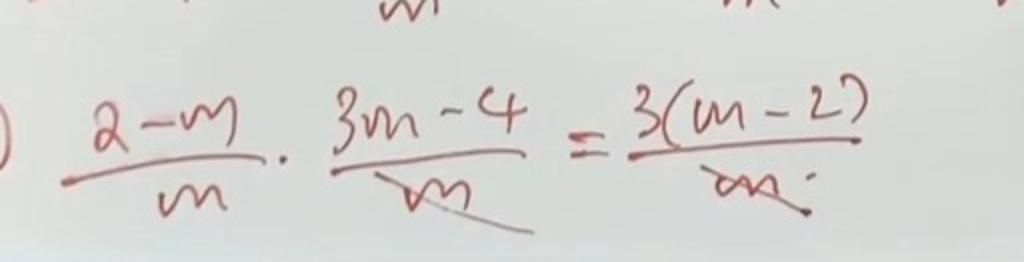 ) (2-m)/m · (3m-4)/m = 3(m-2)/m